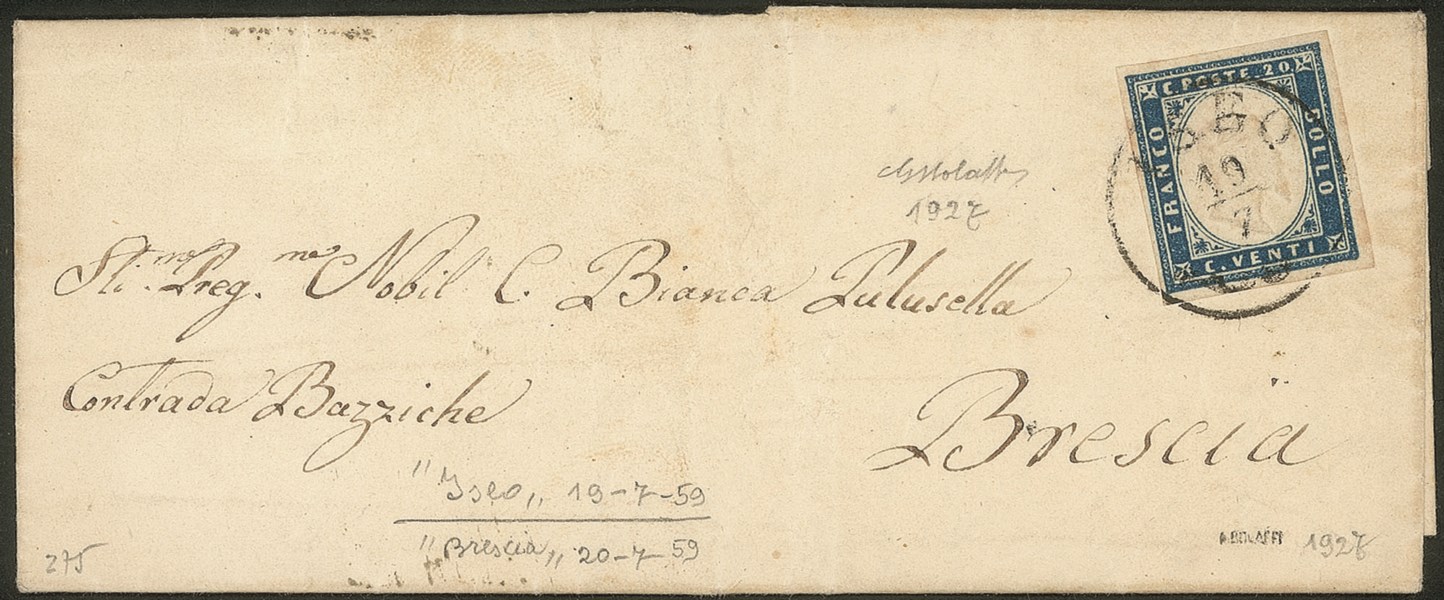 C. POSTE. 20.
FRANCO
BOLLO
C. VENTI
ISEO
19
7
1927
Sti.ma Preg.ma Nobil C. Bianca Palusella
Contrada Bazziche
Brescia
"Iseo„ 19-7-59
"Brescia„ 20-7-59
275
A. BOLAFFI 1927